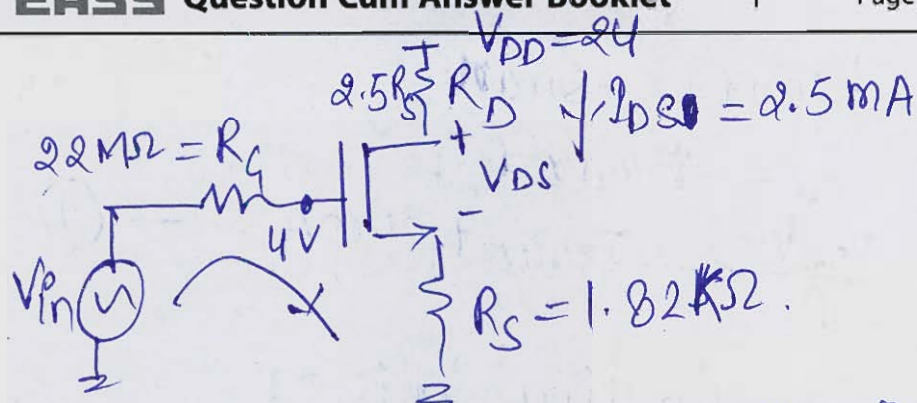 Question Cum Answer Booklet
Page
VDD = 24
2.5RS RD
IDS = 2.5 mA
22 MΩ = RG
+
VDS
-
4V
Vin
RS = 1.82KΩ.